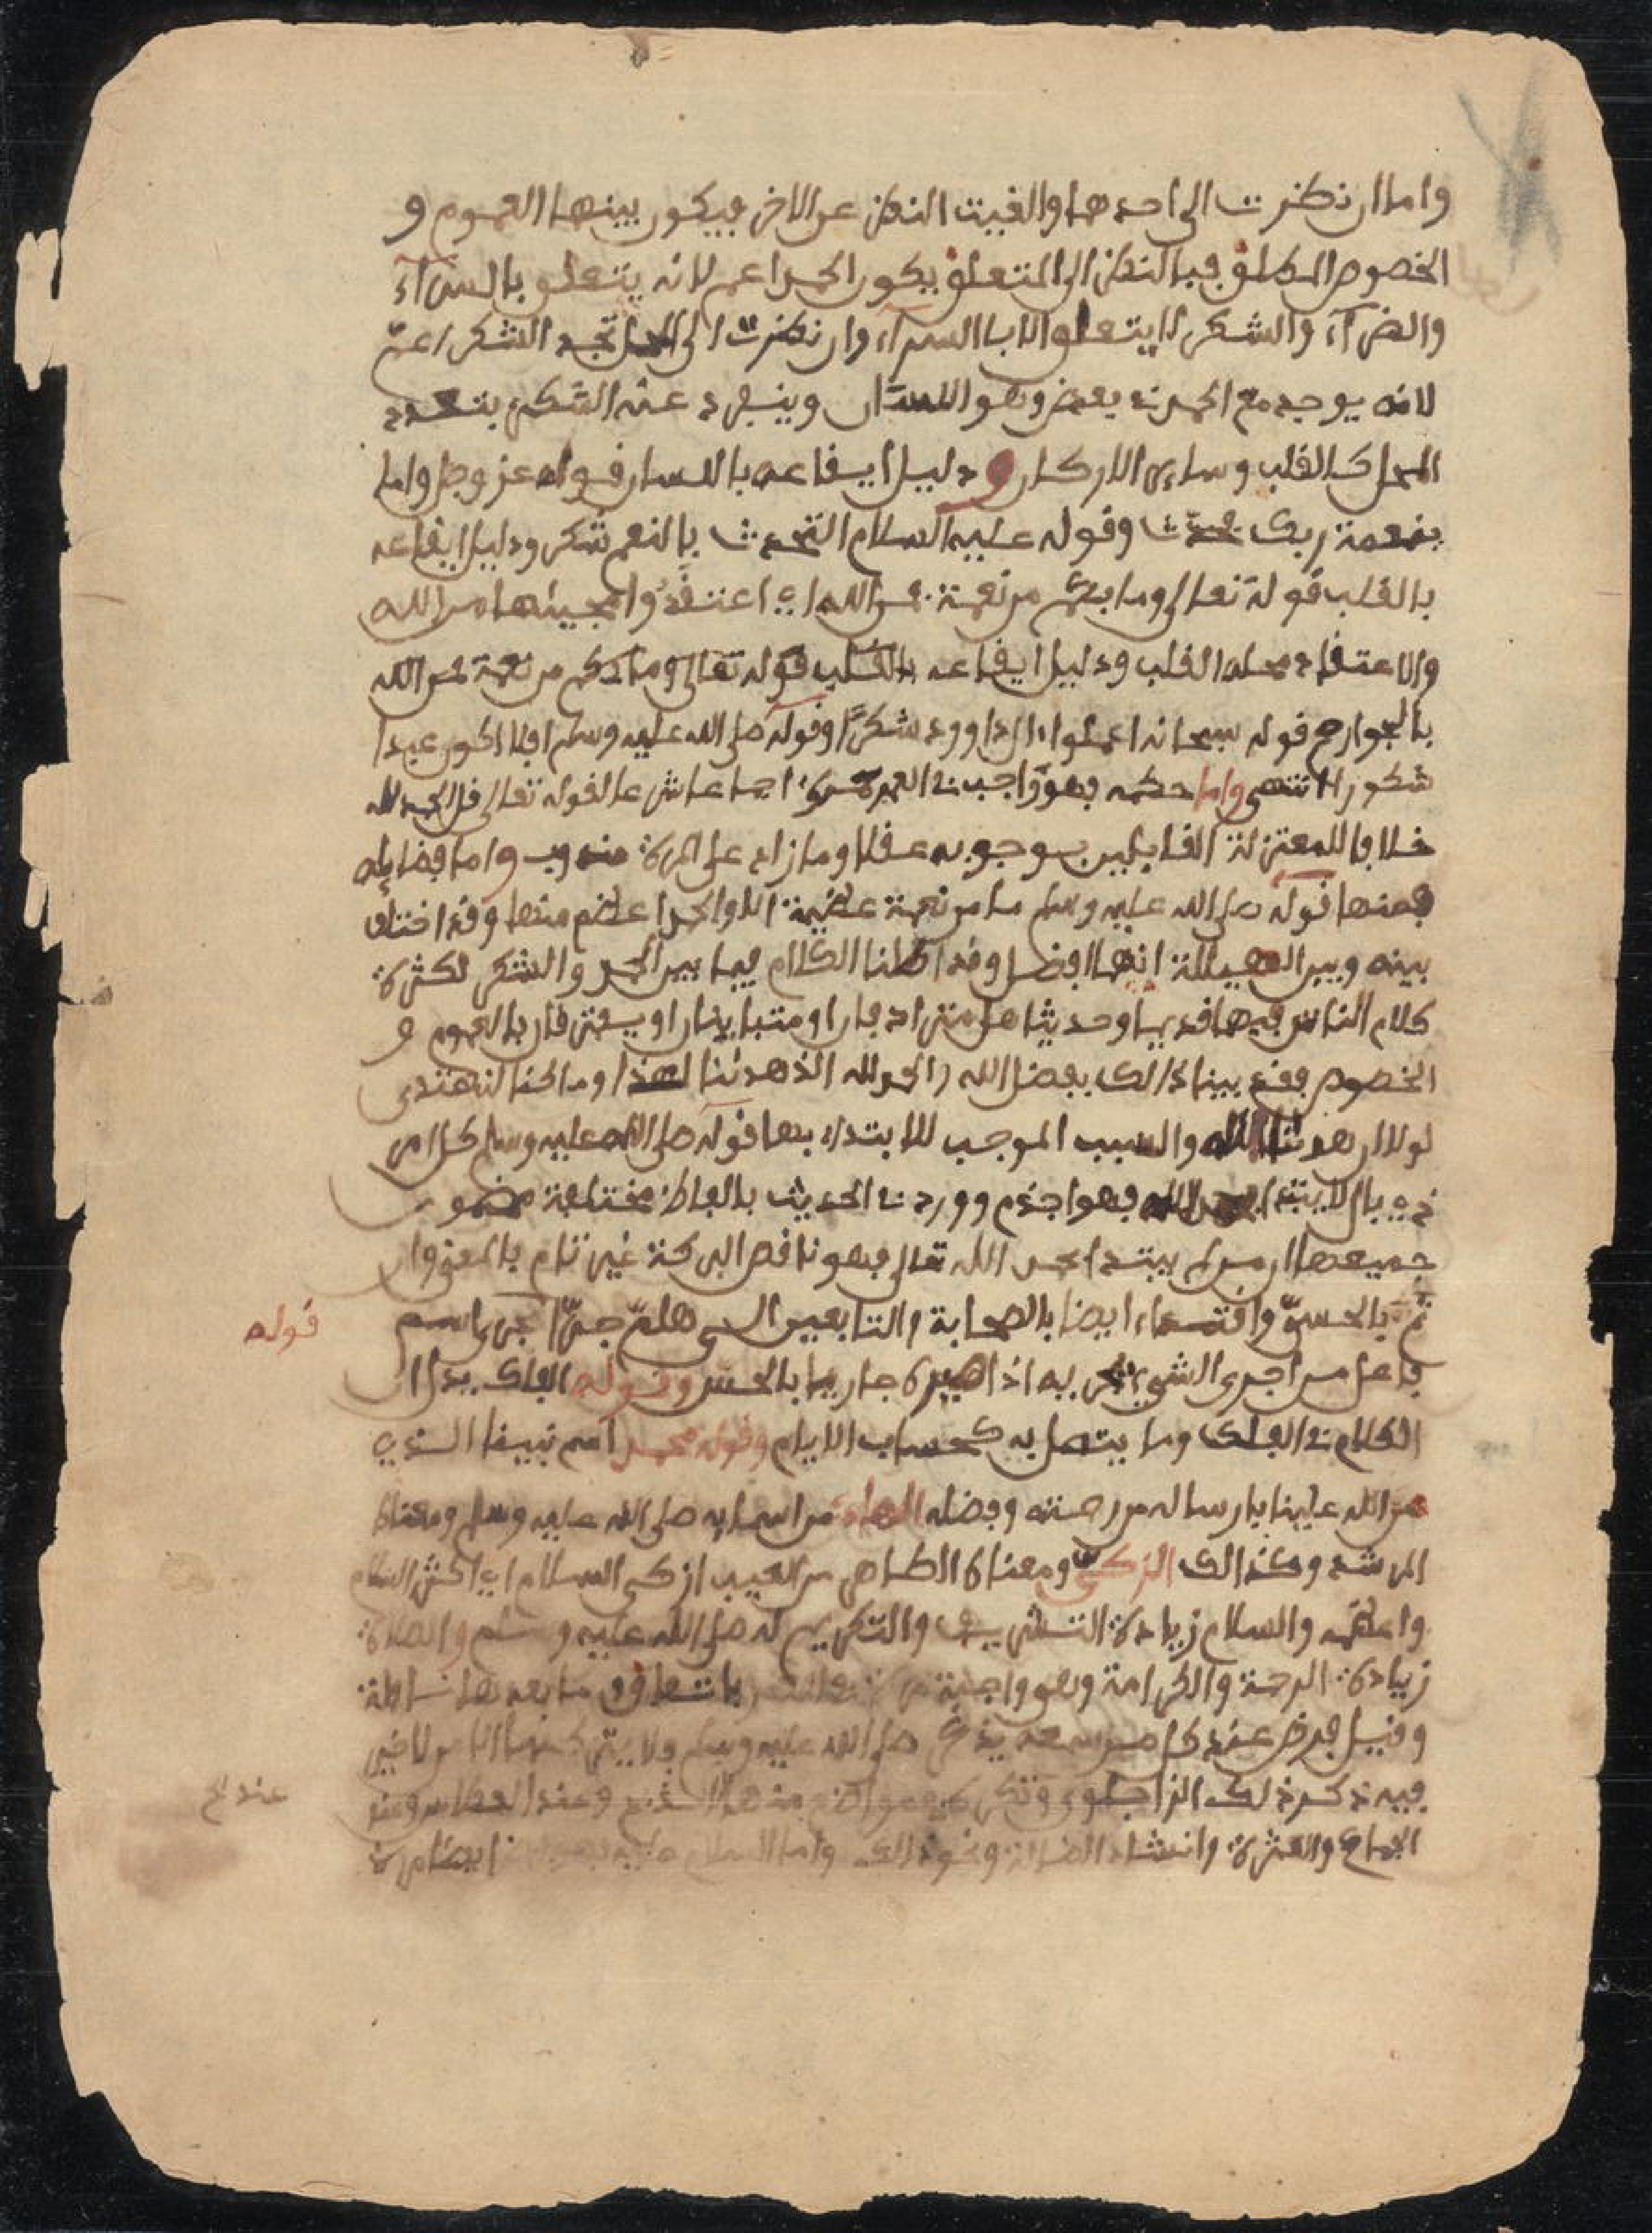 واما ان نظرت الى احدهما والغيت النظر عن الاخر فيكون بينهما العموم و
الخصوص المطلق فبالنظر الى المتعلق يكون الحمد اعم لانه يتعلق بالسراء
والضراء والشكر لا يتعلق الا بالسراء وان نظرت الى المحل تجد الشكر اعم
لانه يوجد مع الحمد في بعض وهو اللسان وينفرد عنه الشكر بتعدد
المحل كالقلب وسائر الاركان ودليل ايقاعه باللسان قوله عز وجل واما
بنعمة ربك فحدث وقوله عليه السلام التحدث بالنعم شكر ودليل ايقاعه
بالقلب قوله تعالى وما بكم من نعمة فمن الله اي اعتقدوا مجيئها من الله
والاعتقاد محله القلب ودليل ايقاعه بالقلب قوله تعالى وما بكم من نعمة فمن الله
بالجوارح قوله سبحانه اعملوا ءال داوود شكرا وقوله صلى الله عليه وسلم افلا اكون عبدا
شكورا انتهى واما حكمه فهو واجب في العمر مرة اجماعا شرعا لقوله تعالى قل الحمد لله
خلافا للمعتزلة القايلين بوجوبه عقلا وما زاد على المرة مندوب واما فضايله
فمنها قوله صلى الله عليه وسلم ما من نعمة عظيمة الا والحمد اعظم منها وقد اختلف
بينه وبين الهيللة ايهما افضل وقد اطلنا الكلام فيما بين الحمد والشكر لكثرة
كلام الناس فيهما قديما وحديثا هل مترادفان او متباينان او يفترقان بالعموم و
الخصوص فقد بينا ذالك بفضل الله والحمد لله الذ هدىنا لهذا وما كنا لنهتدي
لولا ان هدىنا الله والسبب الموجب للابتداء بها قوله صلى الله عليه وسلم كل امر
ذي بال لا يبتدا بحمد الله فهو اجذم وورد في الحديث بالفاظ مختلفة مضمو
جميعها ان من لم يبتدا بحمد الله تعالى فهو ناقص البركة غير تام بالمعنى وان
تم بالحس واقتداء ايضا بالصحابة والتابعين الى هلم جرا اجرى اسم
فاعل من اجرى الشيء يجريه اذا صيره جاريا بالحس وقوله الفلك يدل ان
الكلام في الفلك وما يتصل به كحساب الايام وقوله محمد اسم نبينا الذي
من الله علينا بارساله من رحمته وفضله الهادي من اسمايه صلى الله عليه وسلم ومعناه
المرشد وكذالك الزكي ومعناه الطاهر من العيب ازكى السلام اي اكثر السلام
واعظمه والسلام زيادة التشريف والتكريم له صلى الله عليه وسلم والصلاة
زيادة الرحمة والكرامة وهي واجبة مرة باتفاق وما بعدها نافلة
وقيل فرض عند كل من سمعه يذكر صلى الله عليه وسلم ولا
فيه ذكر ذلك وتكره في مواضع منها الذبح وعند العطاس وعند
الجماع والعثرة وانشاد الضالة ونحو ذالك واما السلام عليه ايضا مرة
قوله
عند كل